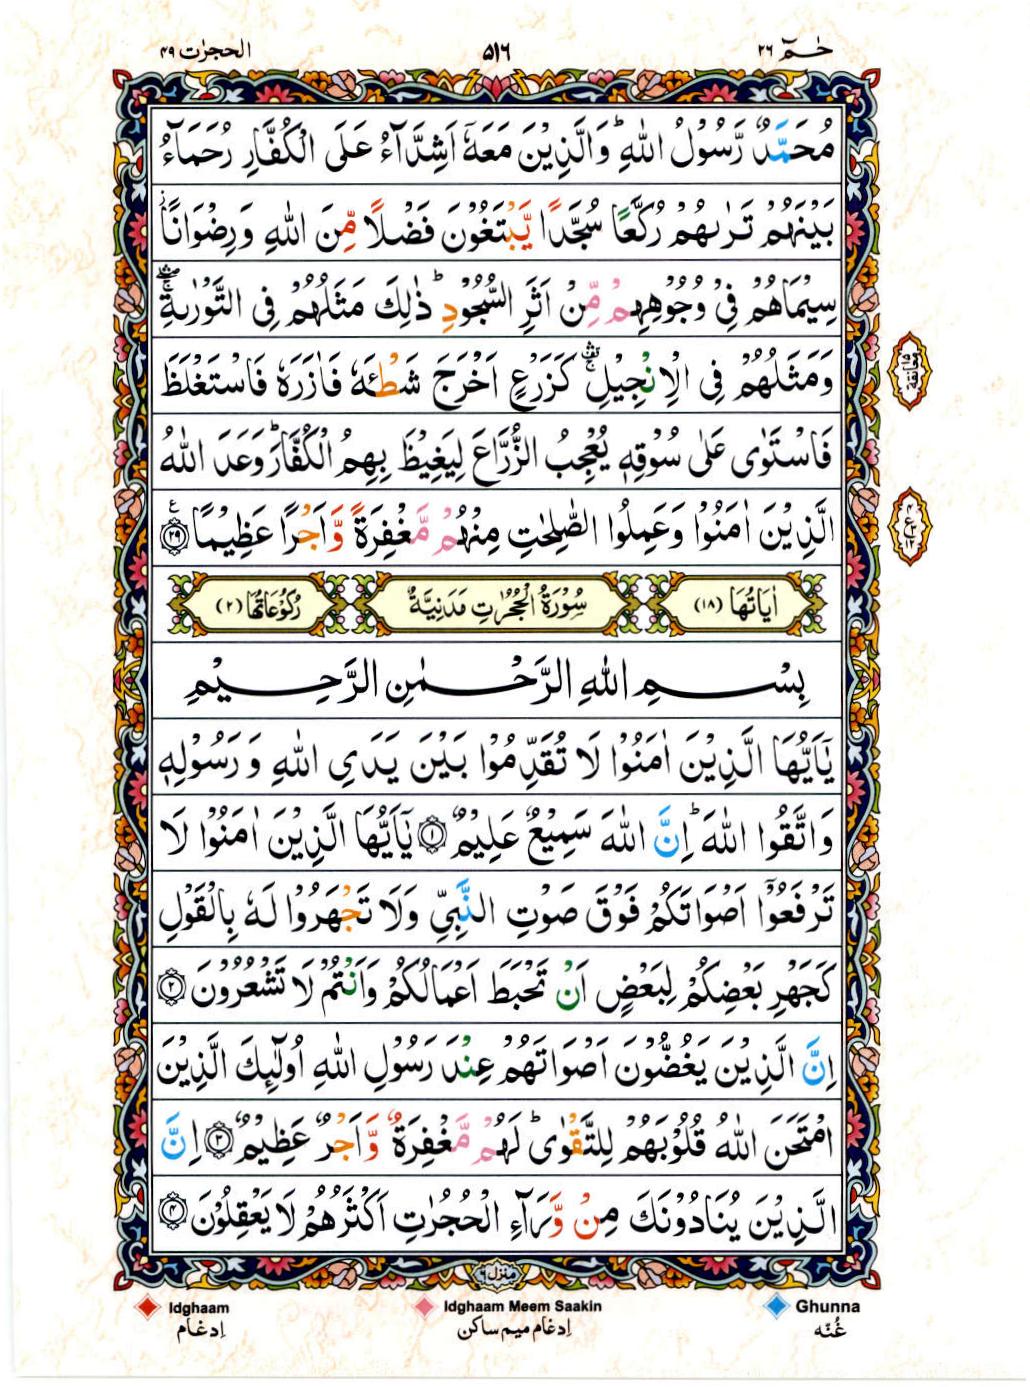 حٰمٓ ٢٦ ٥١٦ الحجرٰت ٤٩
مُحَمَّدٌ رَّسُوْلُ اللّٰهِ ؕ وَالَّذِیْنَ مَعَهٗۤ اَشِدَّآءُ عَلَی الْكُفَّارِ رُحَمَآءُ
بَیْنَهُمْ تَرٰىهُمْ رُكَّعًا سُجَّدًا یَّبْتَغُوْنَ فَضْلًا مِّنَ اللّٰهِ وَرِضْوَانًا ؗ
سِیْمَاهُمْ فِیْ وُجُوْهِهِمْ مِّنْ اَثَرِ السُّجُوْدِ ؕ ذٰلِكَ مَثَلُهُمْ فِی التَّوْرٰىةِ ۛۖۚ
وَمَثَلُهُمْ فِی الْاِنْجِیْلِ ۛ۫ۚ كَزَرْعٍ اَخْرَجَ شَطْـَٔهٗ فَاٰزَرَهٗ فَاسْتَغْلَظَ
معانقة ١٥
فَاسْتَوٰی عَلٰی سُوْقِهٖ یُعْجِبُ الزُّرَّاعَ لِیَغِیْظَ بِهِمُ الْكُفَّارَ ؕ وَعَدَ اللّٰهُ
الَّذِیْنَ اٰمَنُوْا وَعَمِلُوا الصّٰلِحٰتِ مِنْهُمْ مَّغْفِرَةً وَّاَجْرًا عَظِیْمًا ﴿٢٩﴾ ع
اٰیَاتُهَا (١٨) سُوْرَةُ الْحُجُرٰتِ مَدَنِیَّةٌ رُكُوْعَاتُهَا (٢)
بِسْمِ اللّٰهِ الرَّحْمٰنِ الرَّحِیْمِ
یٰۤاَیُّهَا الَّذِیْنَ اٰمَنُوْا لَا تُقَدِّمُوْا بَیْنَ یَدَیِ اللّٰهِ وَرَسُوْلِهٖ
وَاتَّقُوا اللّٰهَ ؕ اِنَّ اللّٰهَ سَمِیْعٌ عَلِیْمٌ ﴿١﴾ یٰۤاَیُّهَا الَّذِیْنَ اٰمَنُوْا لَا
تَرْفَعُوْۤا اَصْوَاتَكُمْ فَوْقَ صَوْتِ النَّبِیِّ وَلَا تَجْهَرُوْا لَهٗ بِالْقَوْلِ
كَجَهْرِ بَعْضِكُمْ لِبَعْضٍ اَنْ تَحْبَطَ اَعْمَالُكُمْ وَاَنْتُمْ لَا تَشْعُرُوْنَ ﴿٢﴾
اِنَّ الَّذِیْنَ یَغُضُّوْنَ اَصْوَاتَهُمْ عِنْدَ رَسُوْلِ اللّٰهِ اُولٰٓىِٕكَ الَّذِیْنَ
امْتَحَنَ اللّٰهُ قُلُوْبَهُمْ لِلتَّقْوٰی ؕ لَهُمْ مَّغْفِرَةٌ وَّاَجْرٌ عَظِیْمٌ ﴿٣﴾ اِنَّ
الَّذِیْنَ یُنَادُوْنَكَ مِنْ وَّرَآءِ الْحُجُرٰتِ اَكْثَرُهُمْ لَا یَعْقِلُوْنَ ﴿٤﴾
منزل ٦
Idghaam Idghaam Meem Saakin Ghunna
اِدغام اِدغام میم ساکن غُنّه